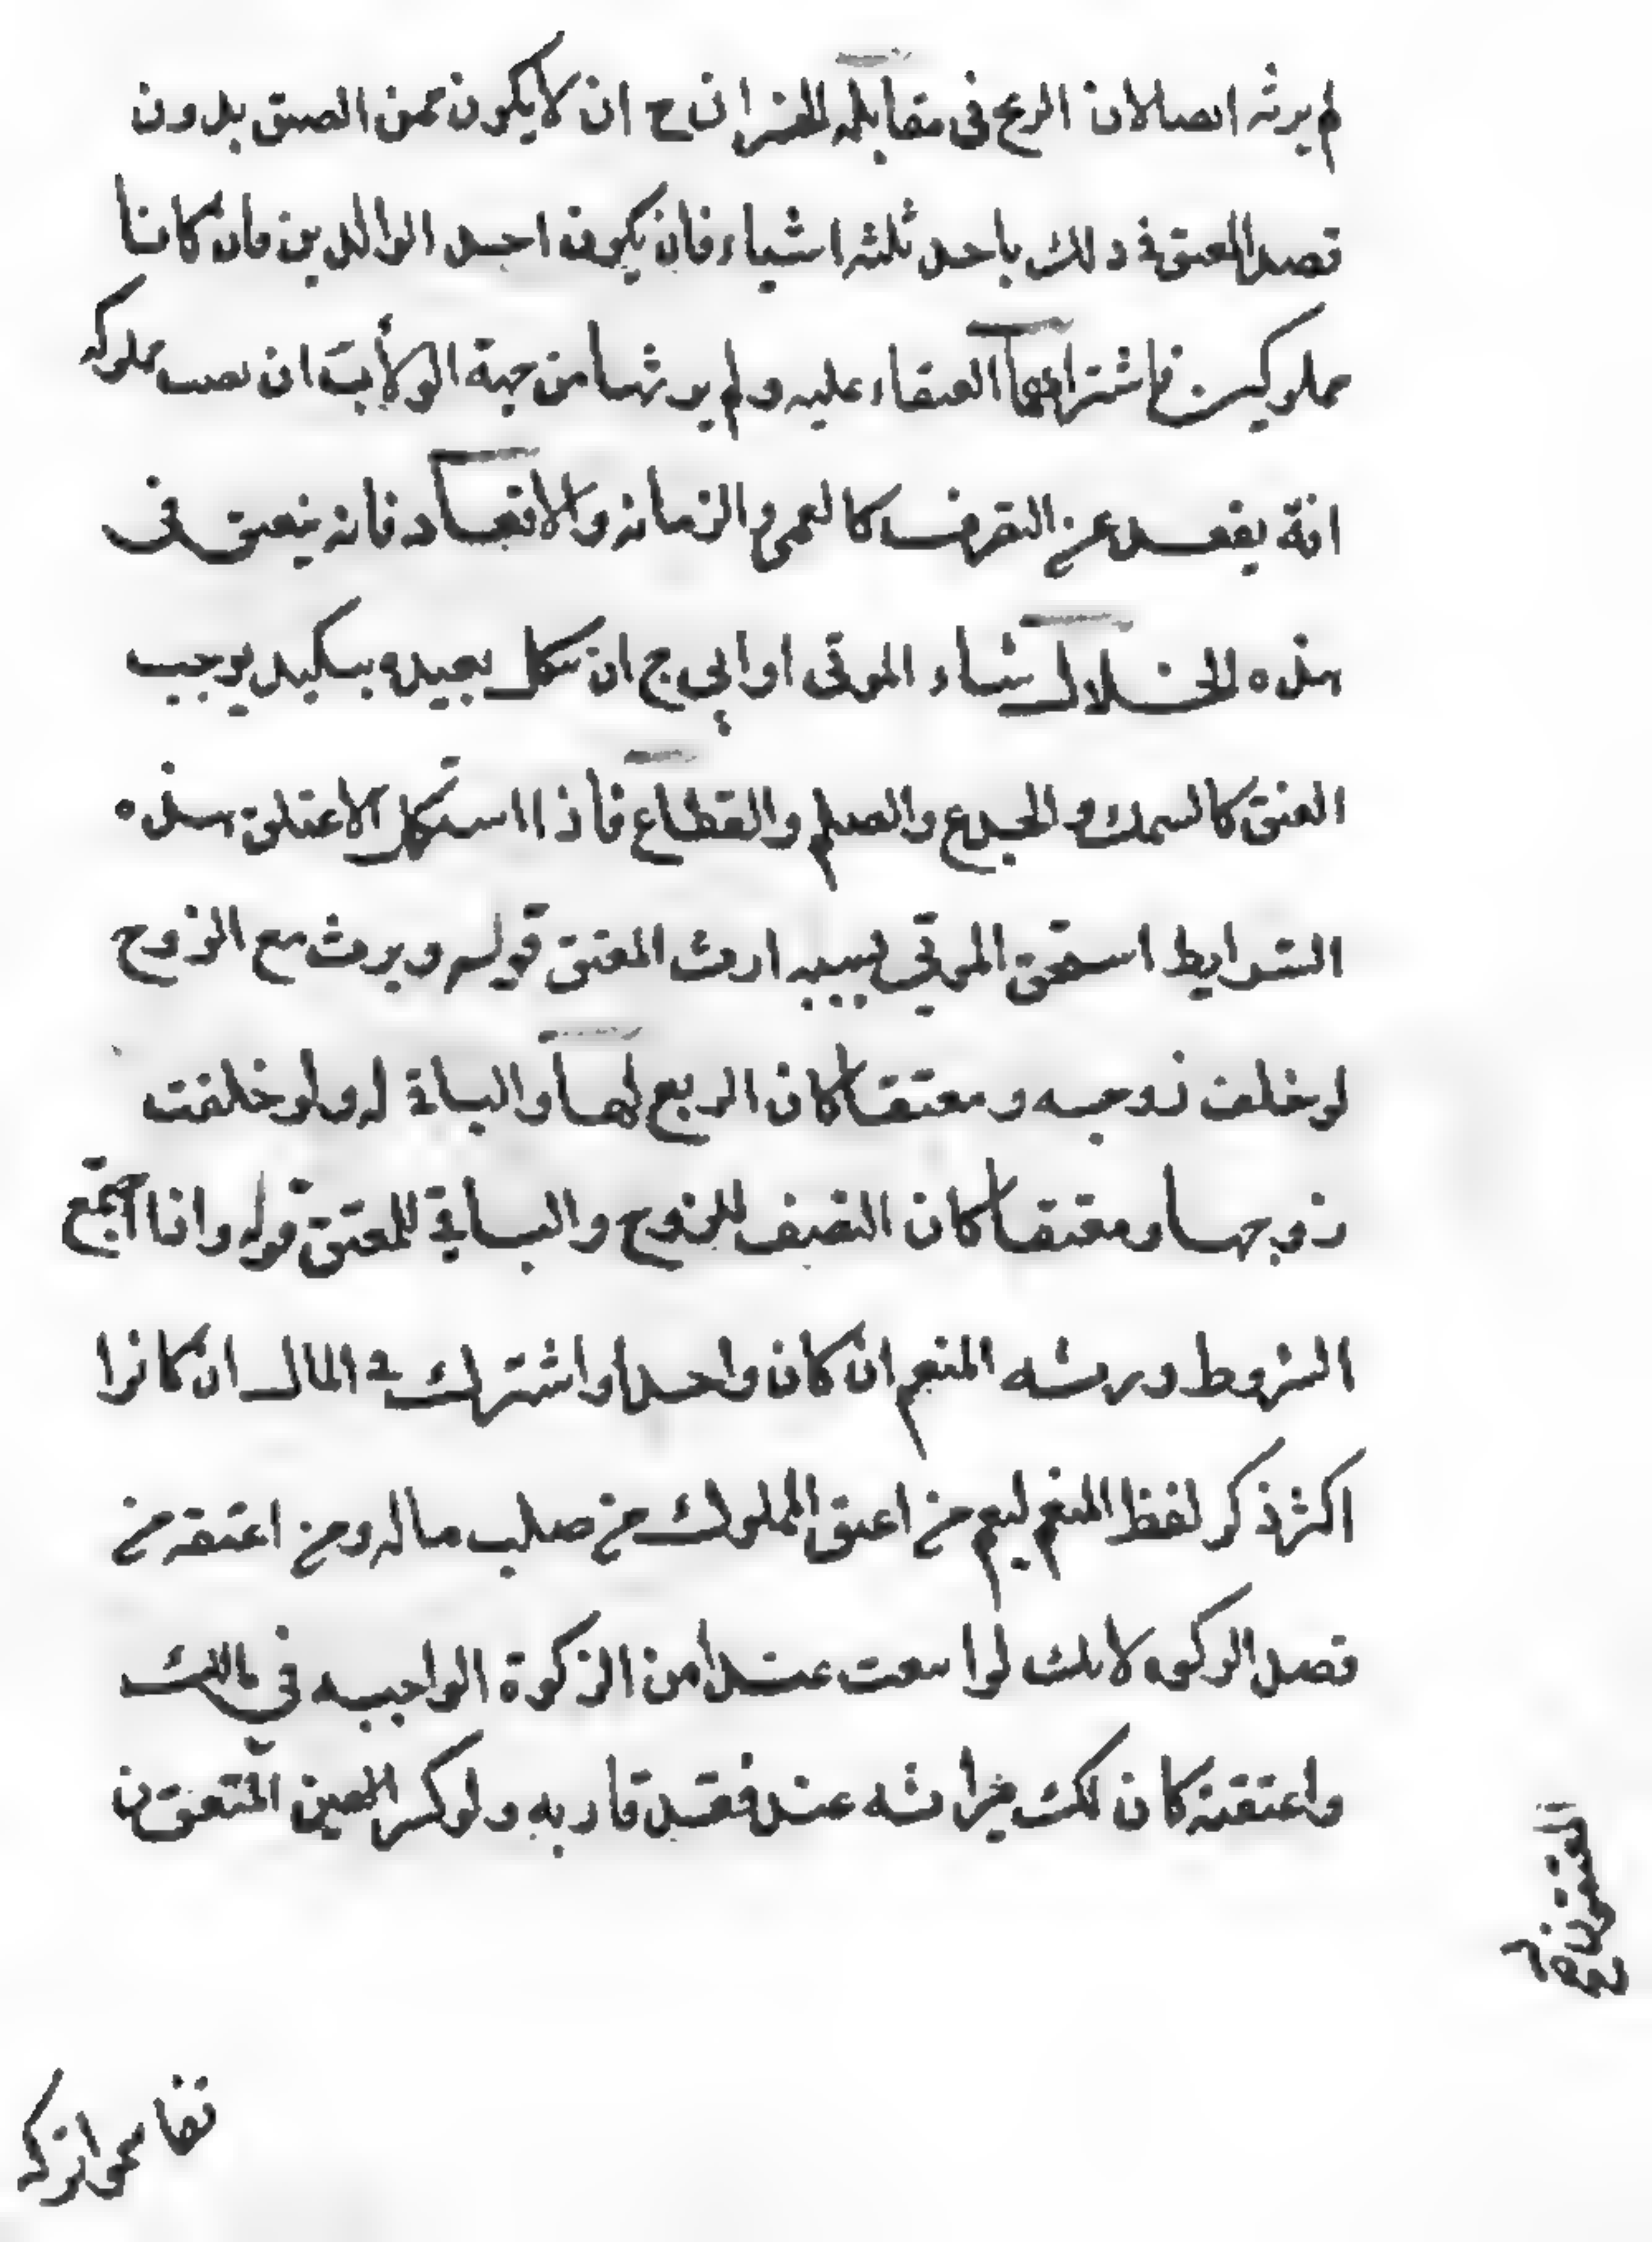 لم يرثه اصلا لان الربح في مقابله الخسران ح ان لا يكون ممن العتق بدون
قصد المعتق في ذلك باحد ثلثه اشياء فان يكون احد الوالدين فان كانا
مملوكين فاشتراهما العتقاء عليه ولم يرثها من جهة الولأ ب ان مملوكه
افة يقعد عن التصرف كالعمى والزمانه والاقعاد فانه ينعتق في
هذه الخلال شاء المولى او ابى ج ان نكل بعبيده بنكيل يوجب
العتق كالسمل والجدع والصلم والقطاع فاذا استكمل هذه
الشرايط استحق المولى بسببه ارث المعتق قوله ويرث مع الزوج
لو خلف زوجه ومعتقا كان الربع لها والباق له ولو خلفت
زوجها ومعتقا كان النصف للزوج والباقي للمعتق قوله واذا اجتمع
الشروط ورثه المنعم ان كان واحدا واشترك في المال ان كانوا
اكثر ذكر لفظ المنعم ليعم من اعتق المملوك من صلب ماله ومن اعتقه من
قصد الزكوه لانك لو ابتعت عبدا من الزكوة الواجبه في مالك
واعتقته كان لك ميراثه عند فقد قاربه ولو كسر المعين المتعتق ن
تقاسموا تركه